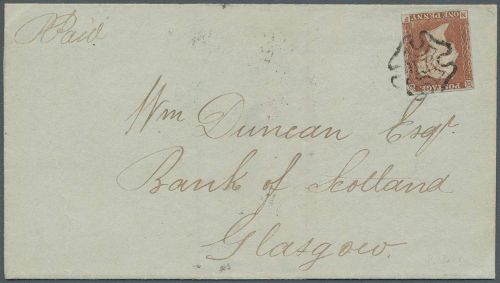 Paid
POSTAGE
ONE PENNY
Wm Duncan Esqr.
Bank of Scotland
Glasgow.